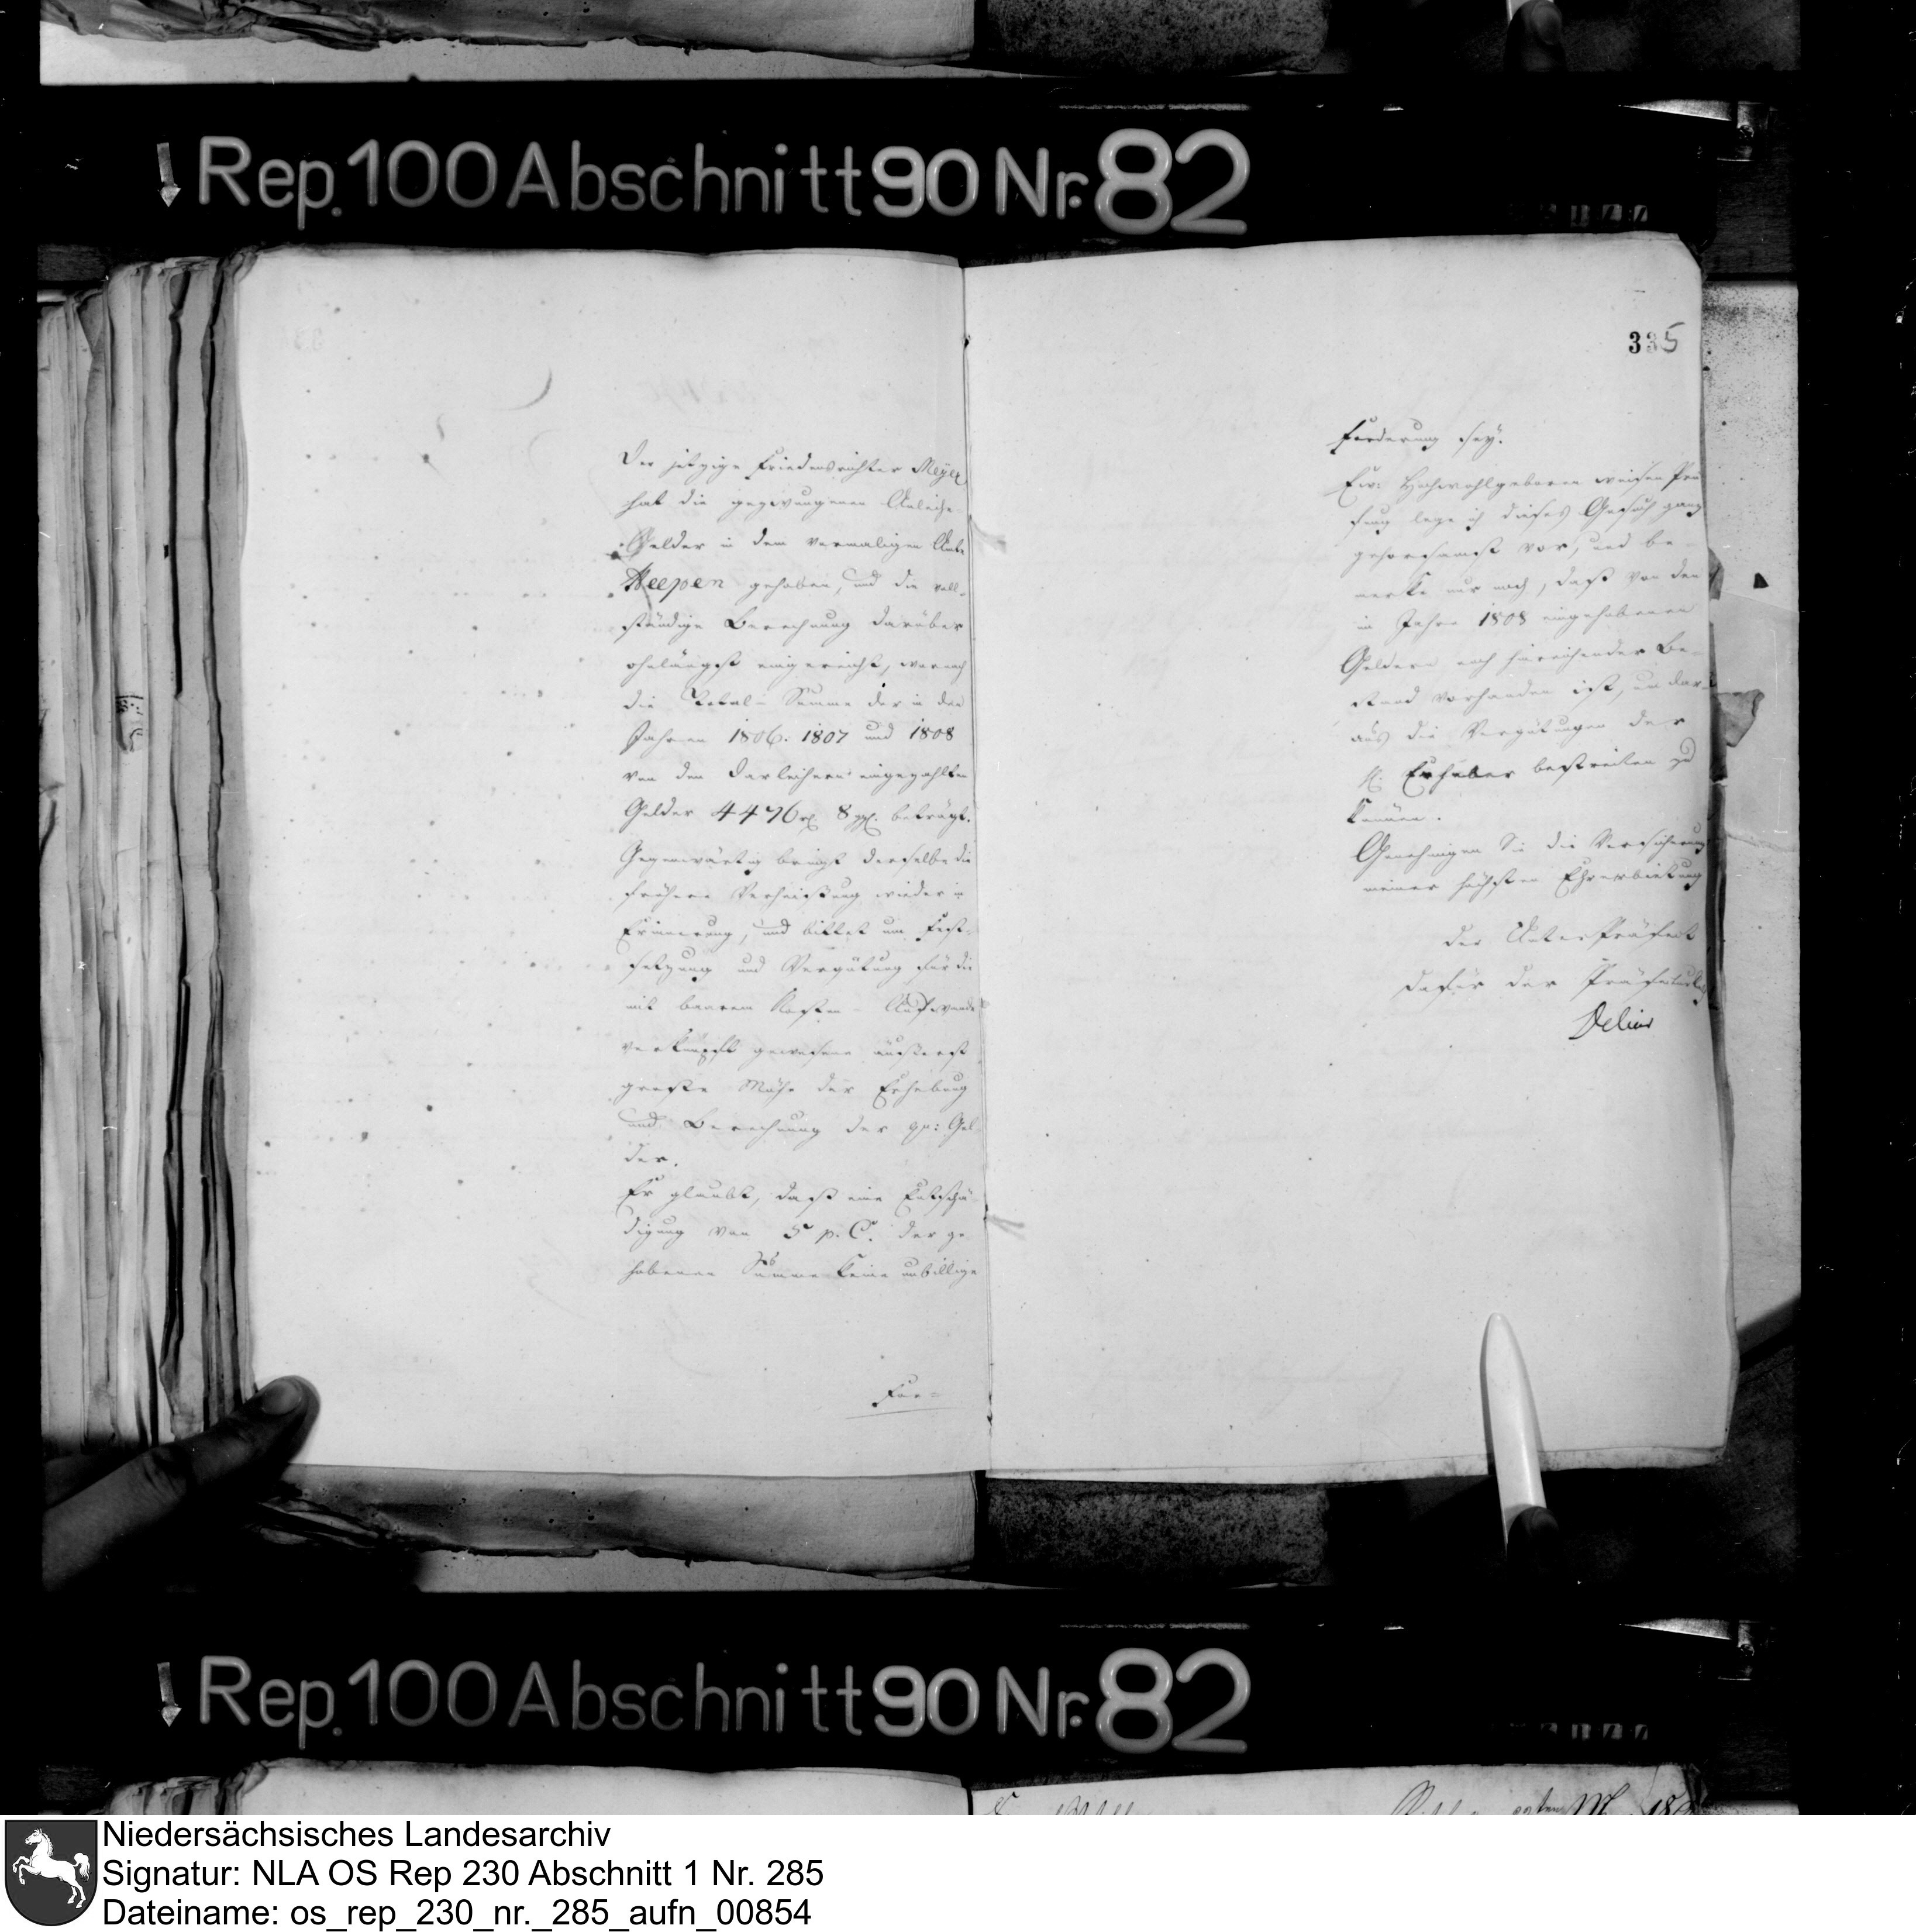 Rep. 100 Abschnitt 90 Nr. 82
Der jetzige Friedensrichter Meyer
hat die gezwungenen Anleihe-
Gelder in dem vormaligen Amte
Heepen gehoben, und die voll-
ständige Berechnung darüber
ohnlängst eingereicht, wornach
die Total-Summe der in den
Jahren 1806. 1807 und 1808
von den Darleihern eingezahlten
Gelder 4476 rt. 8 ggl. beträgt.
Gegenwärtig bringt derselbe die
frühere Verheißung wieder in
Erinnerung, und bittet um Fest-
setzung und Vergütung für die
mit baarem Kosten-Aufwande
verknüpft gewesene äußerst
große Mühe der Erhebung
und Berechnung der qu: Gel-
der.
Er glaubt, daß eine Entschä-
digung von 5 p. C. der ge-
hobenen Summe keine unbillige
For-
335
Forderung sey.
Ew: Hochwohlgeboren weisen Prü-
fung lege ich dieses Gesuch ganz
gehorsamst vor, und be-
merke nur noch, daß von den
im Jahre 1808 eingehobenen
Geldern noch hinreichender Be-
stand vorhanden ist, um dar-
aus die Vergütungen der
Erheber bestreiten zu
können.
Genehmigen Sie die Versicherung
meiner höchsten Ehrerbietung
der UnterPräfect
dafür der
Delius
Rep. 100 Abschnitt 90 Nr. 82
Niedersächsisches Landesarchiv
Signatur: NLA OS Rep 230 Abschnitt 1 Nr. 285
Dateiname: os_rep_230_nr._285_aufn_00854